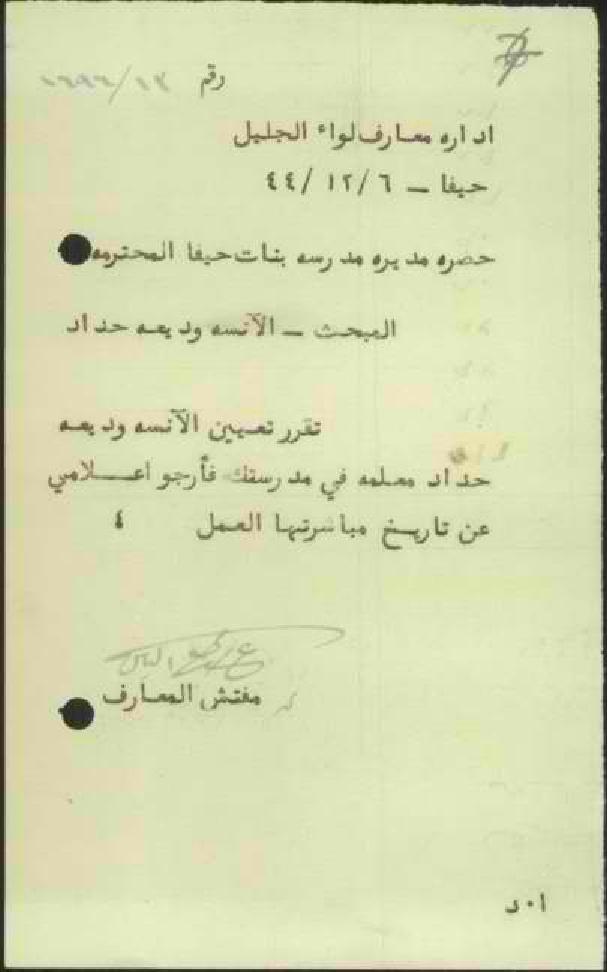 رقم ١٢/١٦٩٦
اداره معارف لواء الجليل
حيفا – ٦ /١٢ /٤٤
حضره مديره مدرسه بنات حيفا المحترمه
المبحث – الآنسه وديعه حداد
تقرر تعيين الآنسه وديعه
حداد معلمه في مدرستك فأرجو اعــلامي
عن تاريخ مباشرتها العمل ٤
مفتش المعارف
ا٠د